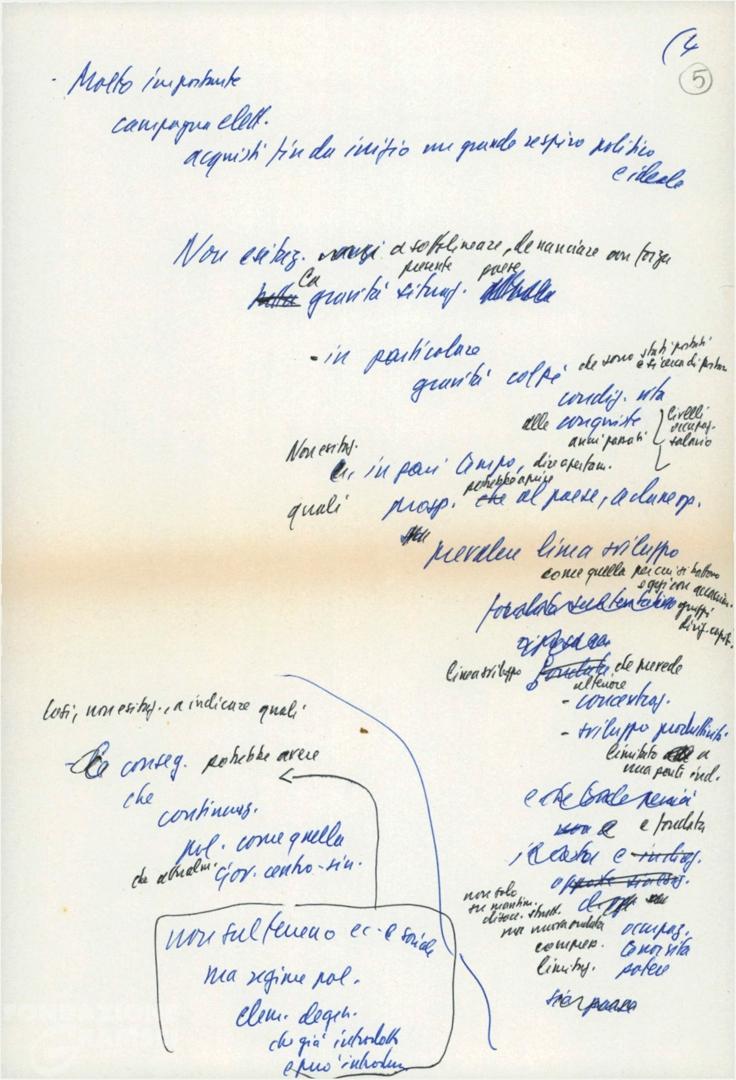 (4
5
- Molto importante
campagna elett.
acquisti fin da inizio un grande respiro politico
e ideale
Non esitaz. a sottolineare, denunciare con forza
la presente paese
gravità situaz.
- in particolare
gravità colpi che sono stati portati
e si cerca di portare
condiz. vita
alle conquiste
anni passati
livelli
occupaz.
salario
Non esitaz.
in pari campo, dire apertam.
quali prosp. potrebbe aprire al paese, a classe op.
prevalere linea sviluppo
come quella per cui si battono
oggi con
gruppi
dirig. capit.
linea sviluppo che prevede
ulteriore
- concentraz.
- sviluppo produttivit.
limitato a
una parte ind.
e che tende perciò
e fondata
non solo
su mantenim.
disocc. strutt.
ma
compres.
limitaz.
occupaz.
potere
Così, non esitaz. a indicare quali
- conseg. potrebbe avere
che
continuaz.
pol. come quella
che attualm. gov. centro-sin.
non sul terreno ec. e sociale
ma regime pol.
elem. degen.
che già introdotti
e può introdurre